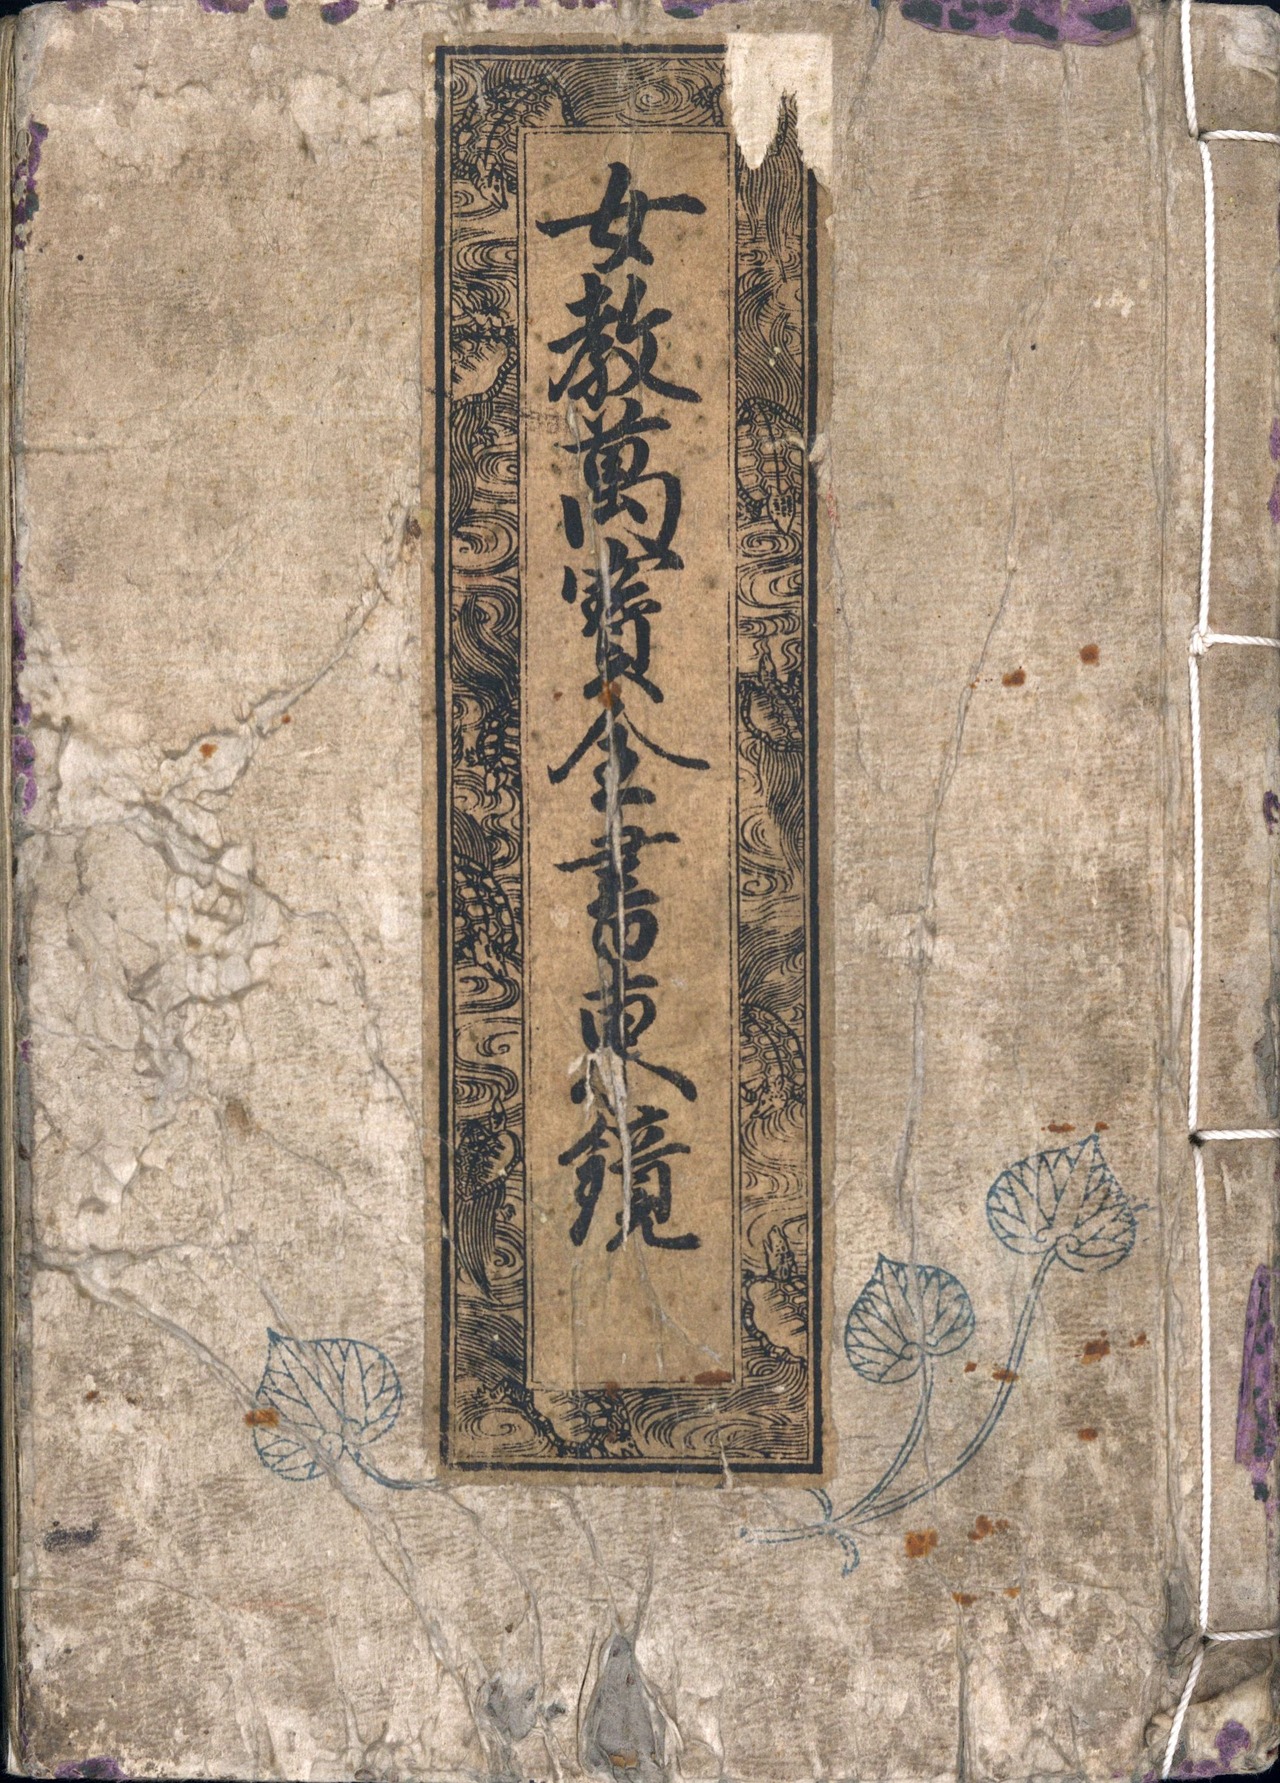 女教萬寳全書東鏡